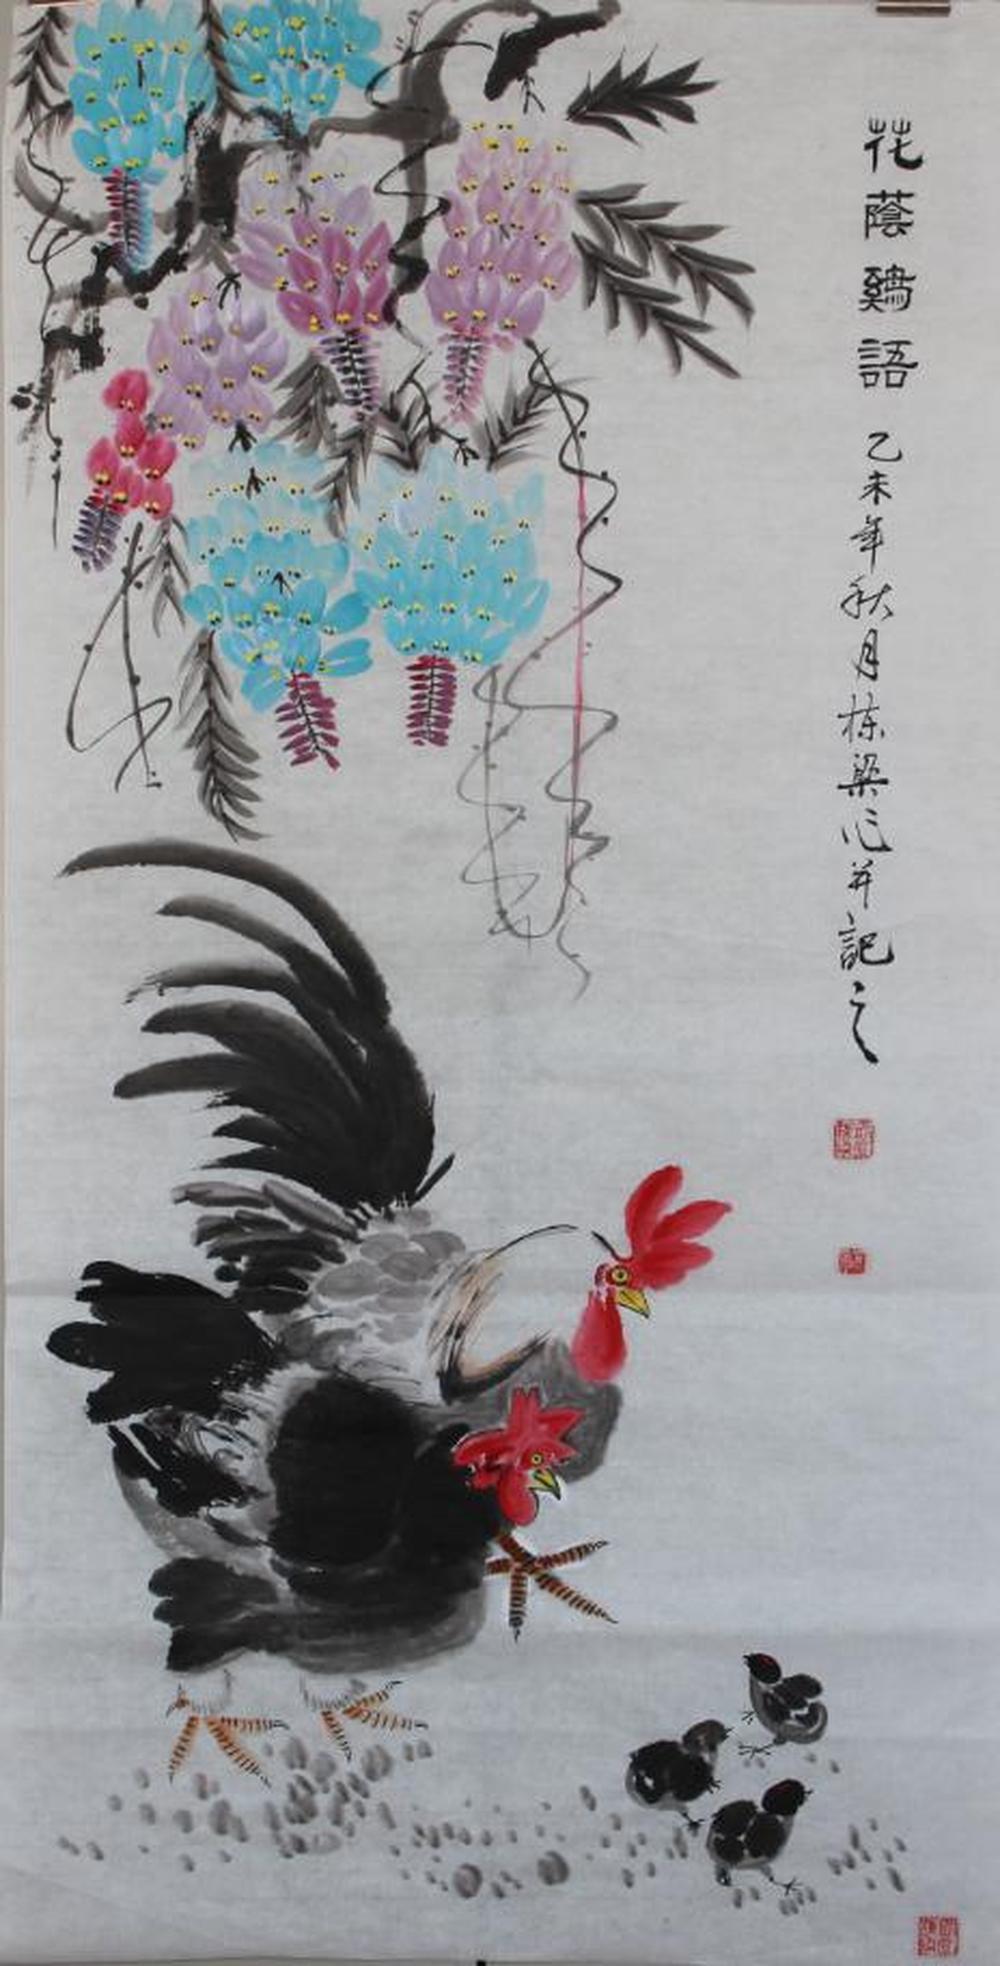 花蔭鷄語
乙未年秋月栋梁心并記之